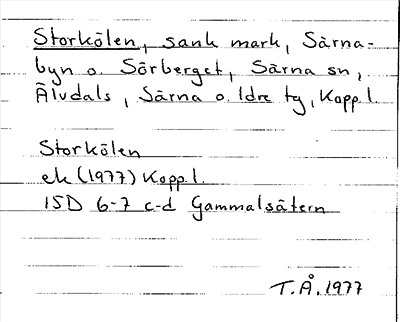 Storkölen, sank mark, Särna-
byn o. Sörberget, Särna sn,
Älvdals, Särna o. Idre tg, Kopp.l.
Storkölen
ek (1977) Kopp.l.
15D 6-7 c-d Gammalsätern
T.Å. 1977